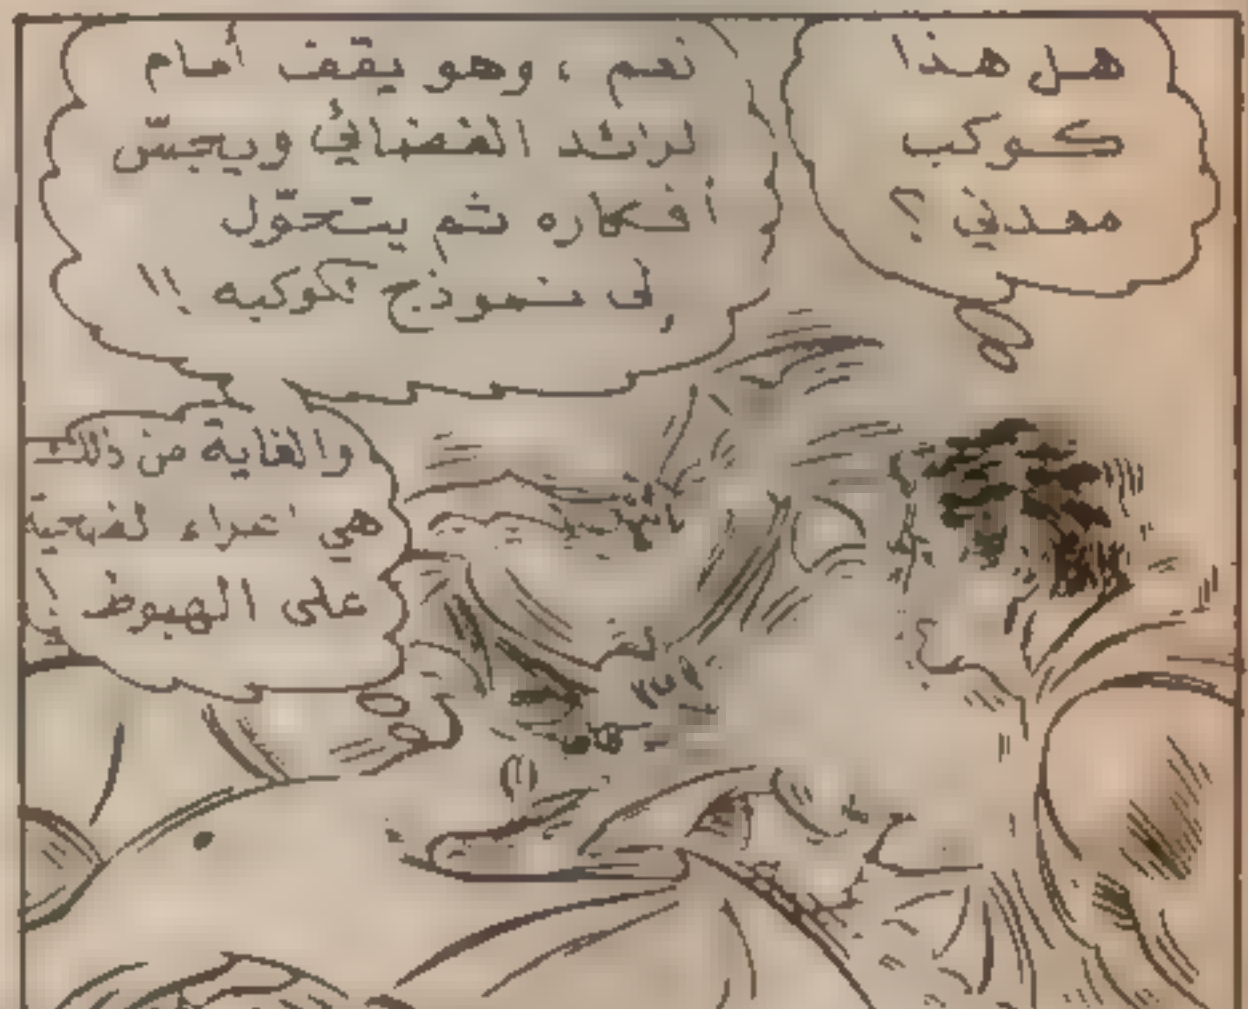 هل هذا
كوكب
مهدي ؟
نعم ، وهو يقف أمام
لرائد الفضائي ويجسّ
أفكاره ثم يتحوّل
إلى نموذج لكوكبه !!
والغاية من ذلك
هي اغراء لضحية
على الهبوط !